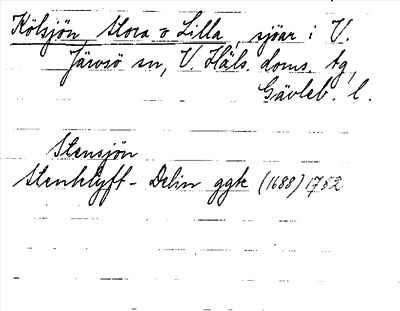 Kölsjön, Stora o Lilla, sjöar i V.
Järvsö sn, V. Häls. doms. tg,
Gävleb. l.
Stensjön
Stenklyft - Delin ggk (1688) 1782